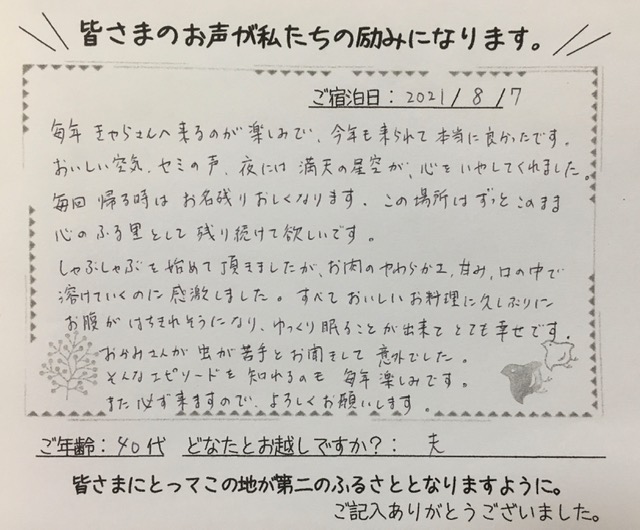 皆さまのお声が私たちの励みになります。
ご宿泊日：2021/8/7
毎年 きゃらさんへ来るのが楽しみで、今年も来られて本当に良かったです。
おいしい空気、セミの声、夜には満天の星空が、心をいやしてくれました。
毎回帰る時はお名残りおしくなります。この場所はずっとこのまま
心のふる里として残り続けて欲しいです。
しゃぶしゃぶを始めて頂きましたが、お肉のやわらかエ、甘み、口の中で
溶けていくのに感激しました。すべておいしいお料理に久しぶりに
お腹がはちきれそうになり、ゆっくり眠ることが出来てとても幸せです。
おかみさんが虫が苦手とお聞きして意外でした。
そんなエピソードを知れるのも毎年楽しみです。
また必ず来ますので、よろしくお願いします。
ご年齢：40代 どなたとお越しですか？：夫
皆さまにとってこの地が第二のふるさととなりますように。
ご記入ありがとうございました。